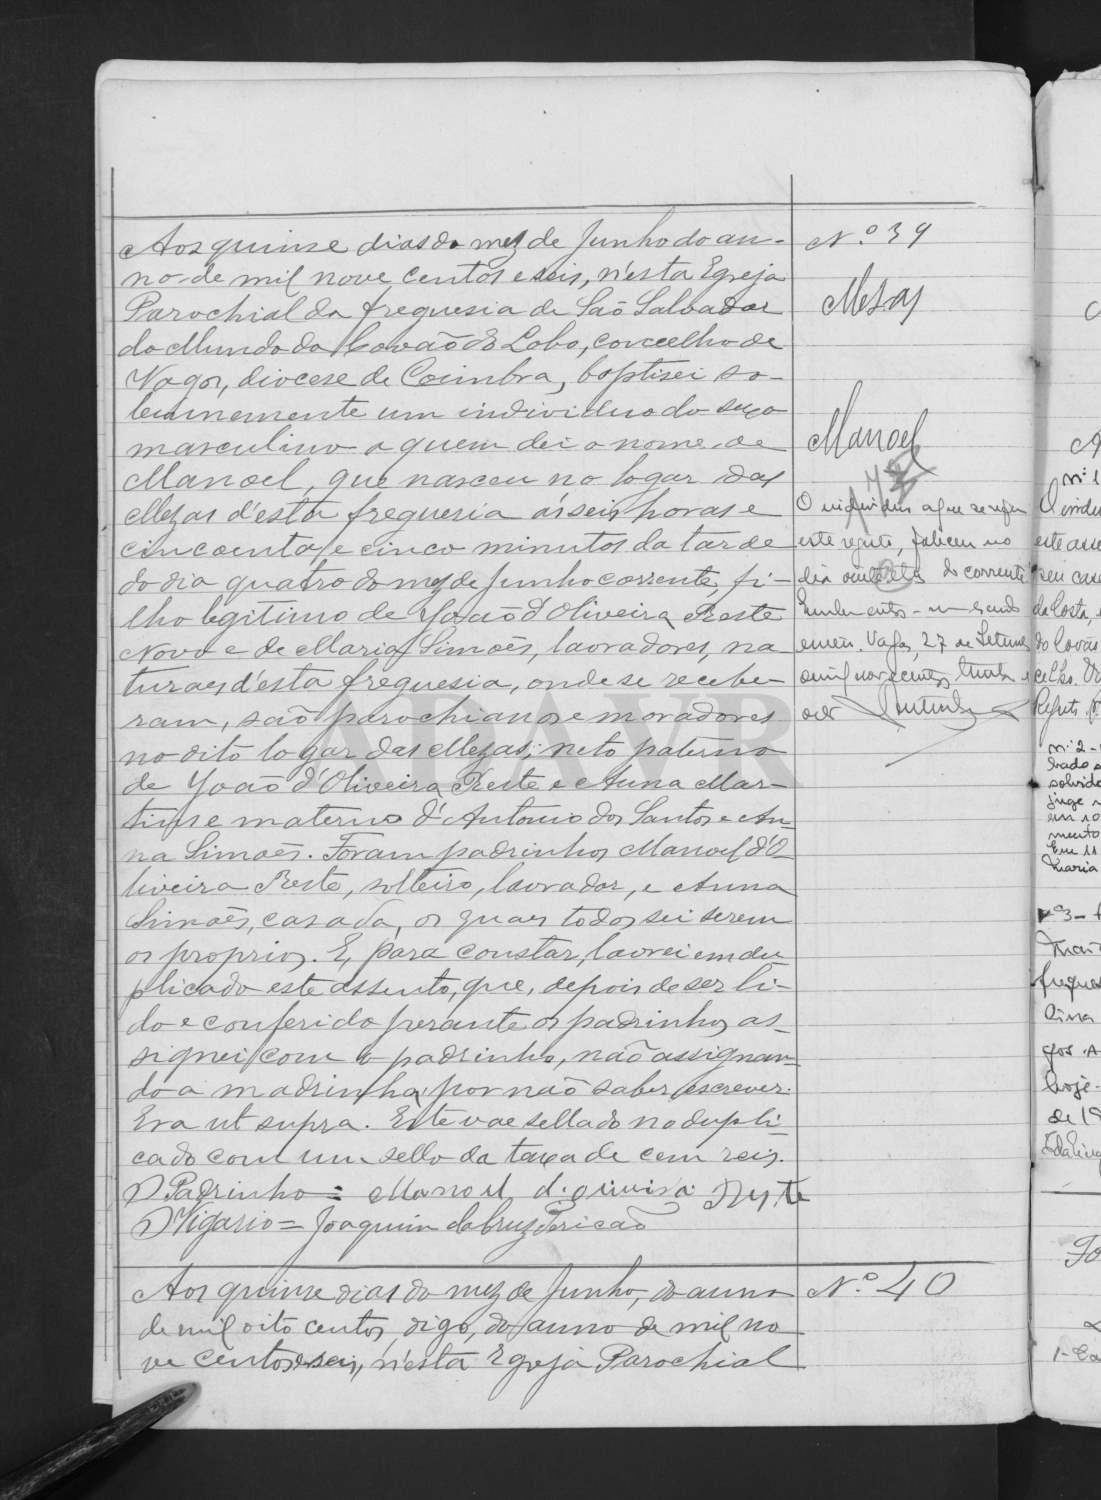 Aos quinse dias do mez de Junho do an-
no de mil nove centos e seis, n'esta Egreja
Parochial da freguesia de São Salvador
do Mundo da Covão do Lobo, concelho de
Vagos, diocese de Coimbra, baptisei so-
lennemente um individuo do sexo
masculino a quem dei o nome de
Manoel, que nasceu no logar das
Mezas d'esta freguesia ás seis horas e
cincoenta e cinco minutos da tarde
do dia quatro do mez de Junho corrente, fi-
lho legitimo de João d'Oliveira Reste
Novo e de Maria Simões, lavradores, na
turaes d'esta freguesia, onde se recebe-
ram, são parochianos e moradores
no dito logar das Mezas; neto paterno
de João d'Oliveira Reste e Anna Mar-
tins e materno d'Antonio dos Santos e An-
na Simões. Foram padrinhos Manoel d'O-
liveira Reste, solteiro, lavrador, e Anna
Simões, casada, os quaes todos sei serem
os proprios. E, para constar, lavrei em du
plicado este assento, que, depois de ser li-
do e conferido perante os padrinhos as-
signei com o padrinho, não assignan-
do a madrinha por não saber escrever.
Era ut supra. Este vae sellado no dupli-
cado com um sello da taxa de cem reis.
O Padrinho = Manoel d. oliviera
O Vigario = Joaquim da Cruz
Nº 39
Mezas
Manoel
O individuo a que se refere
este registo, faleceu no
dia do corrente
Vagos, 27 de Setembro
Aos quinse dias do mez de Junho, do anno
de mil oito centos, digo, do anno de mil no
ve centos e seis, n'esta Egreja Parochial
Nº 40
ADAVR